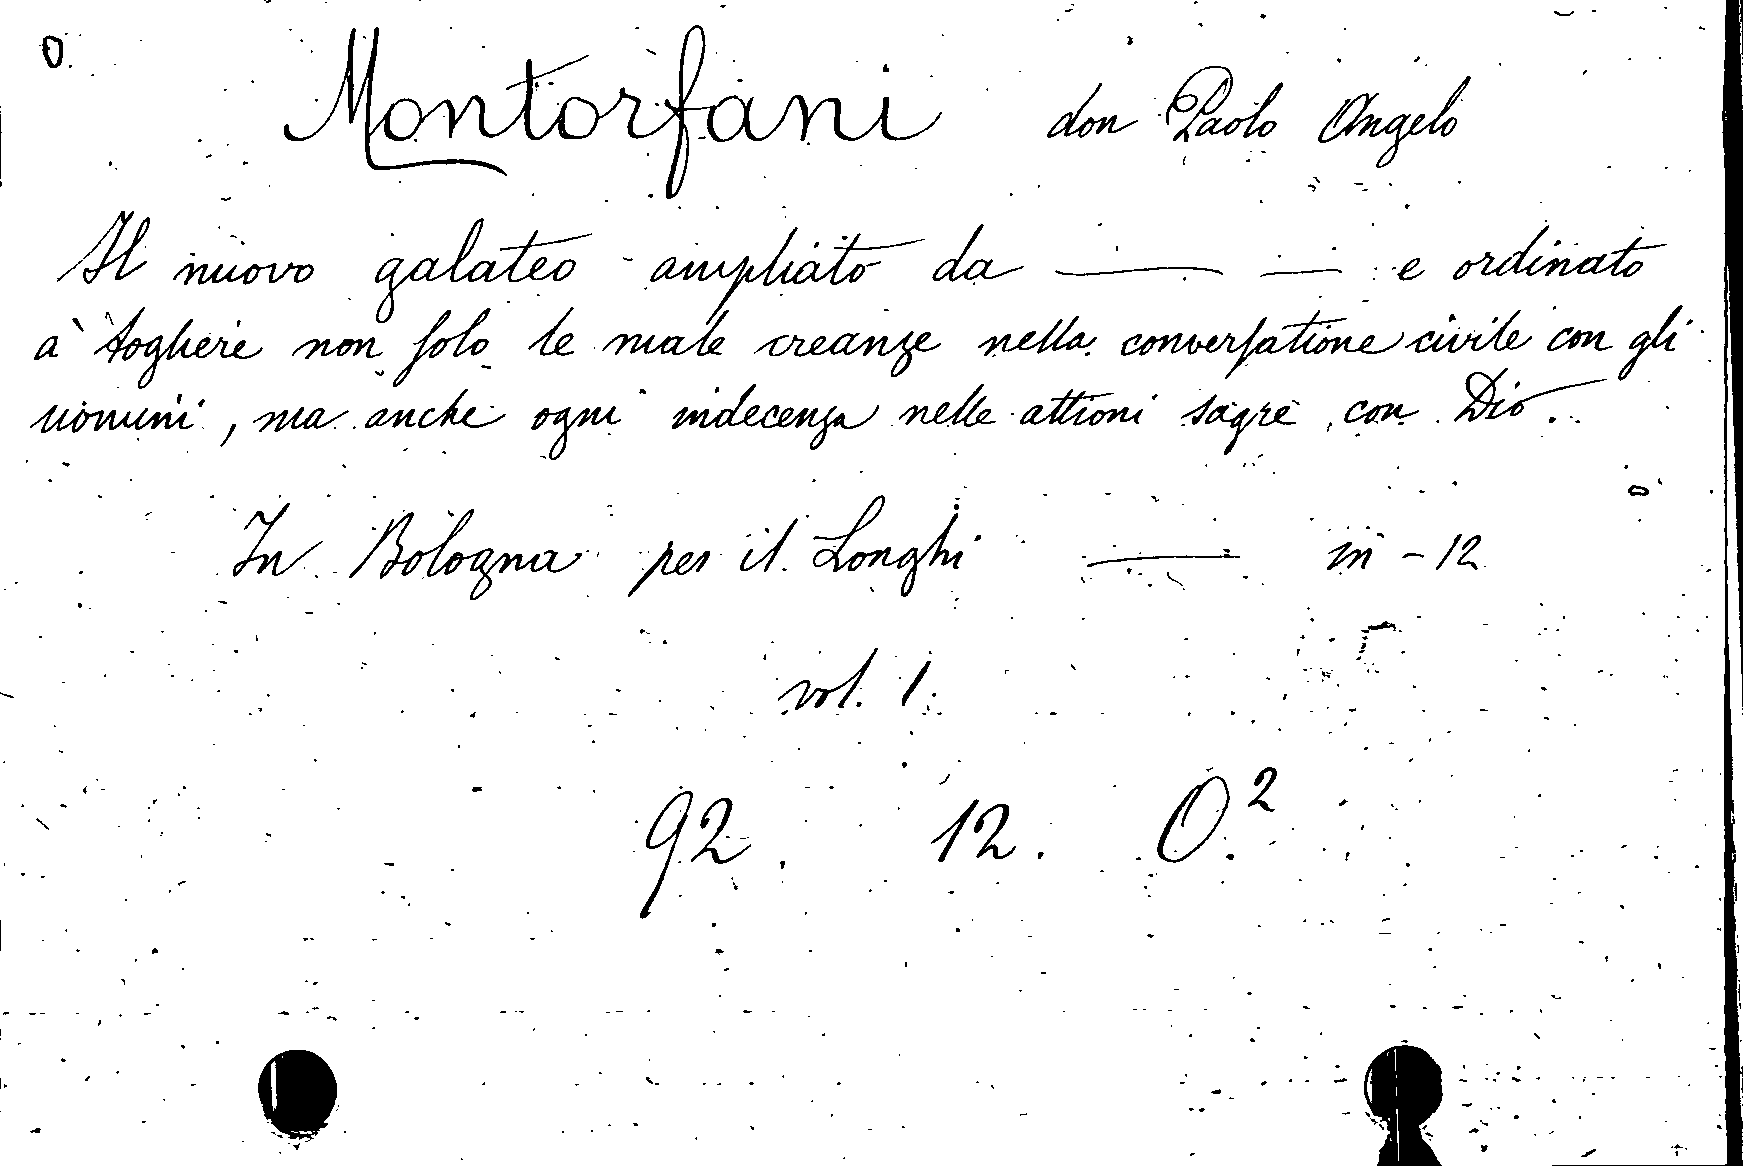 O.
Montorfani don Paolo Angelo
Il nuovo galateo ampliato da —— — e ordinato
a' togliere non solo le male creanze nella conversatione civile con gli
uomini, ma anche ogni indecenza nelle attioni sagre con Dio.
In Bologna per il Longhi —— in-12
vol. 1.
92. 12. O.²